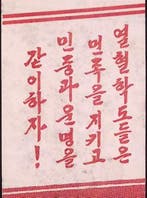 열혈학도들은
민족을 지키고
민중과 운명을
같이하자!